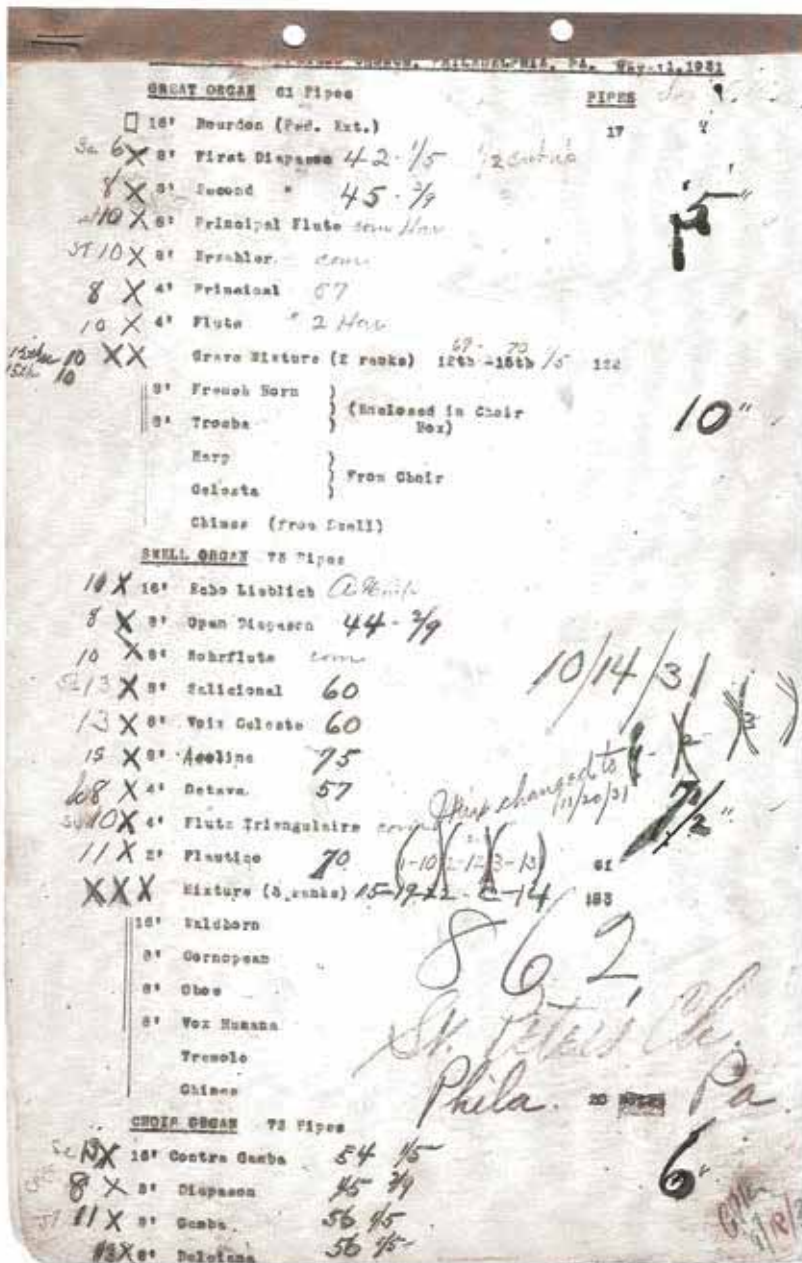 CHURCH, PHILADELPHIA, PA. 1931
GREAT ORGAN 61 Pipes PIPES
16' Bourdon (Ped. Ext.) 17
Sc 6 X 8' First Diapason 42-1/5
8 X 8' Second " 45-2/9
10 X 8' Principal Flute com Har
ST 10 X 8' Erzahler com
8 X 4' Principal 57
10 X 4' Flute " 2 Har
69- 70
10 XX Grave Mixture (2 ranks) 12th-15th 1/5 122
15th 10
8' French Horn } (Enclosed in Choir
8' Tromba } Box) 10"
Harp }
Celesta } From Choir
Chimes (from Swell)
SWELL ORGAN 73 Pipes
10 X 16' Echo Lieblich
8 X 8' Open Diapason 44-2/9
10 X 8' Rohrflute com
13 X 8' Salicional 60
10/14/31
13 X 8' Voix Celeste 60
15 X 8' Aeoline 75
8 X 4' Octave 57
changed to
11/20/31
7 1/2"
10 X 4' Flute Triangulaire com
11 X 2' Flautino 70 (1-10)(2-12)(3-13) 61
XXX Mixture (3 ranks) 15-19-22-C-14 183
16' Waldhorn
8' Cornopean
862
8' Oboe
8' Vox Humana
St. Peter's Ch.
Tremolo
Chimes
Phila. Pa
20
CHOIR ORGAN 73 Pipes
Sc 13 X 16' Contra Gamba 54 1/5
6"
8 X 8' Diapason 45 2/9
11 X 8' Gamba 56 1/5
13 X 8' Dulciana 56 1/5